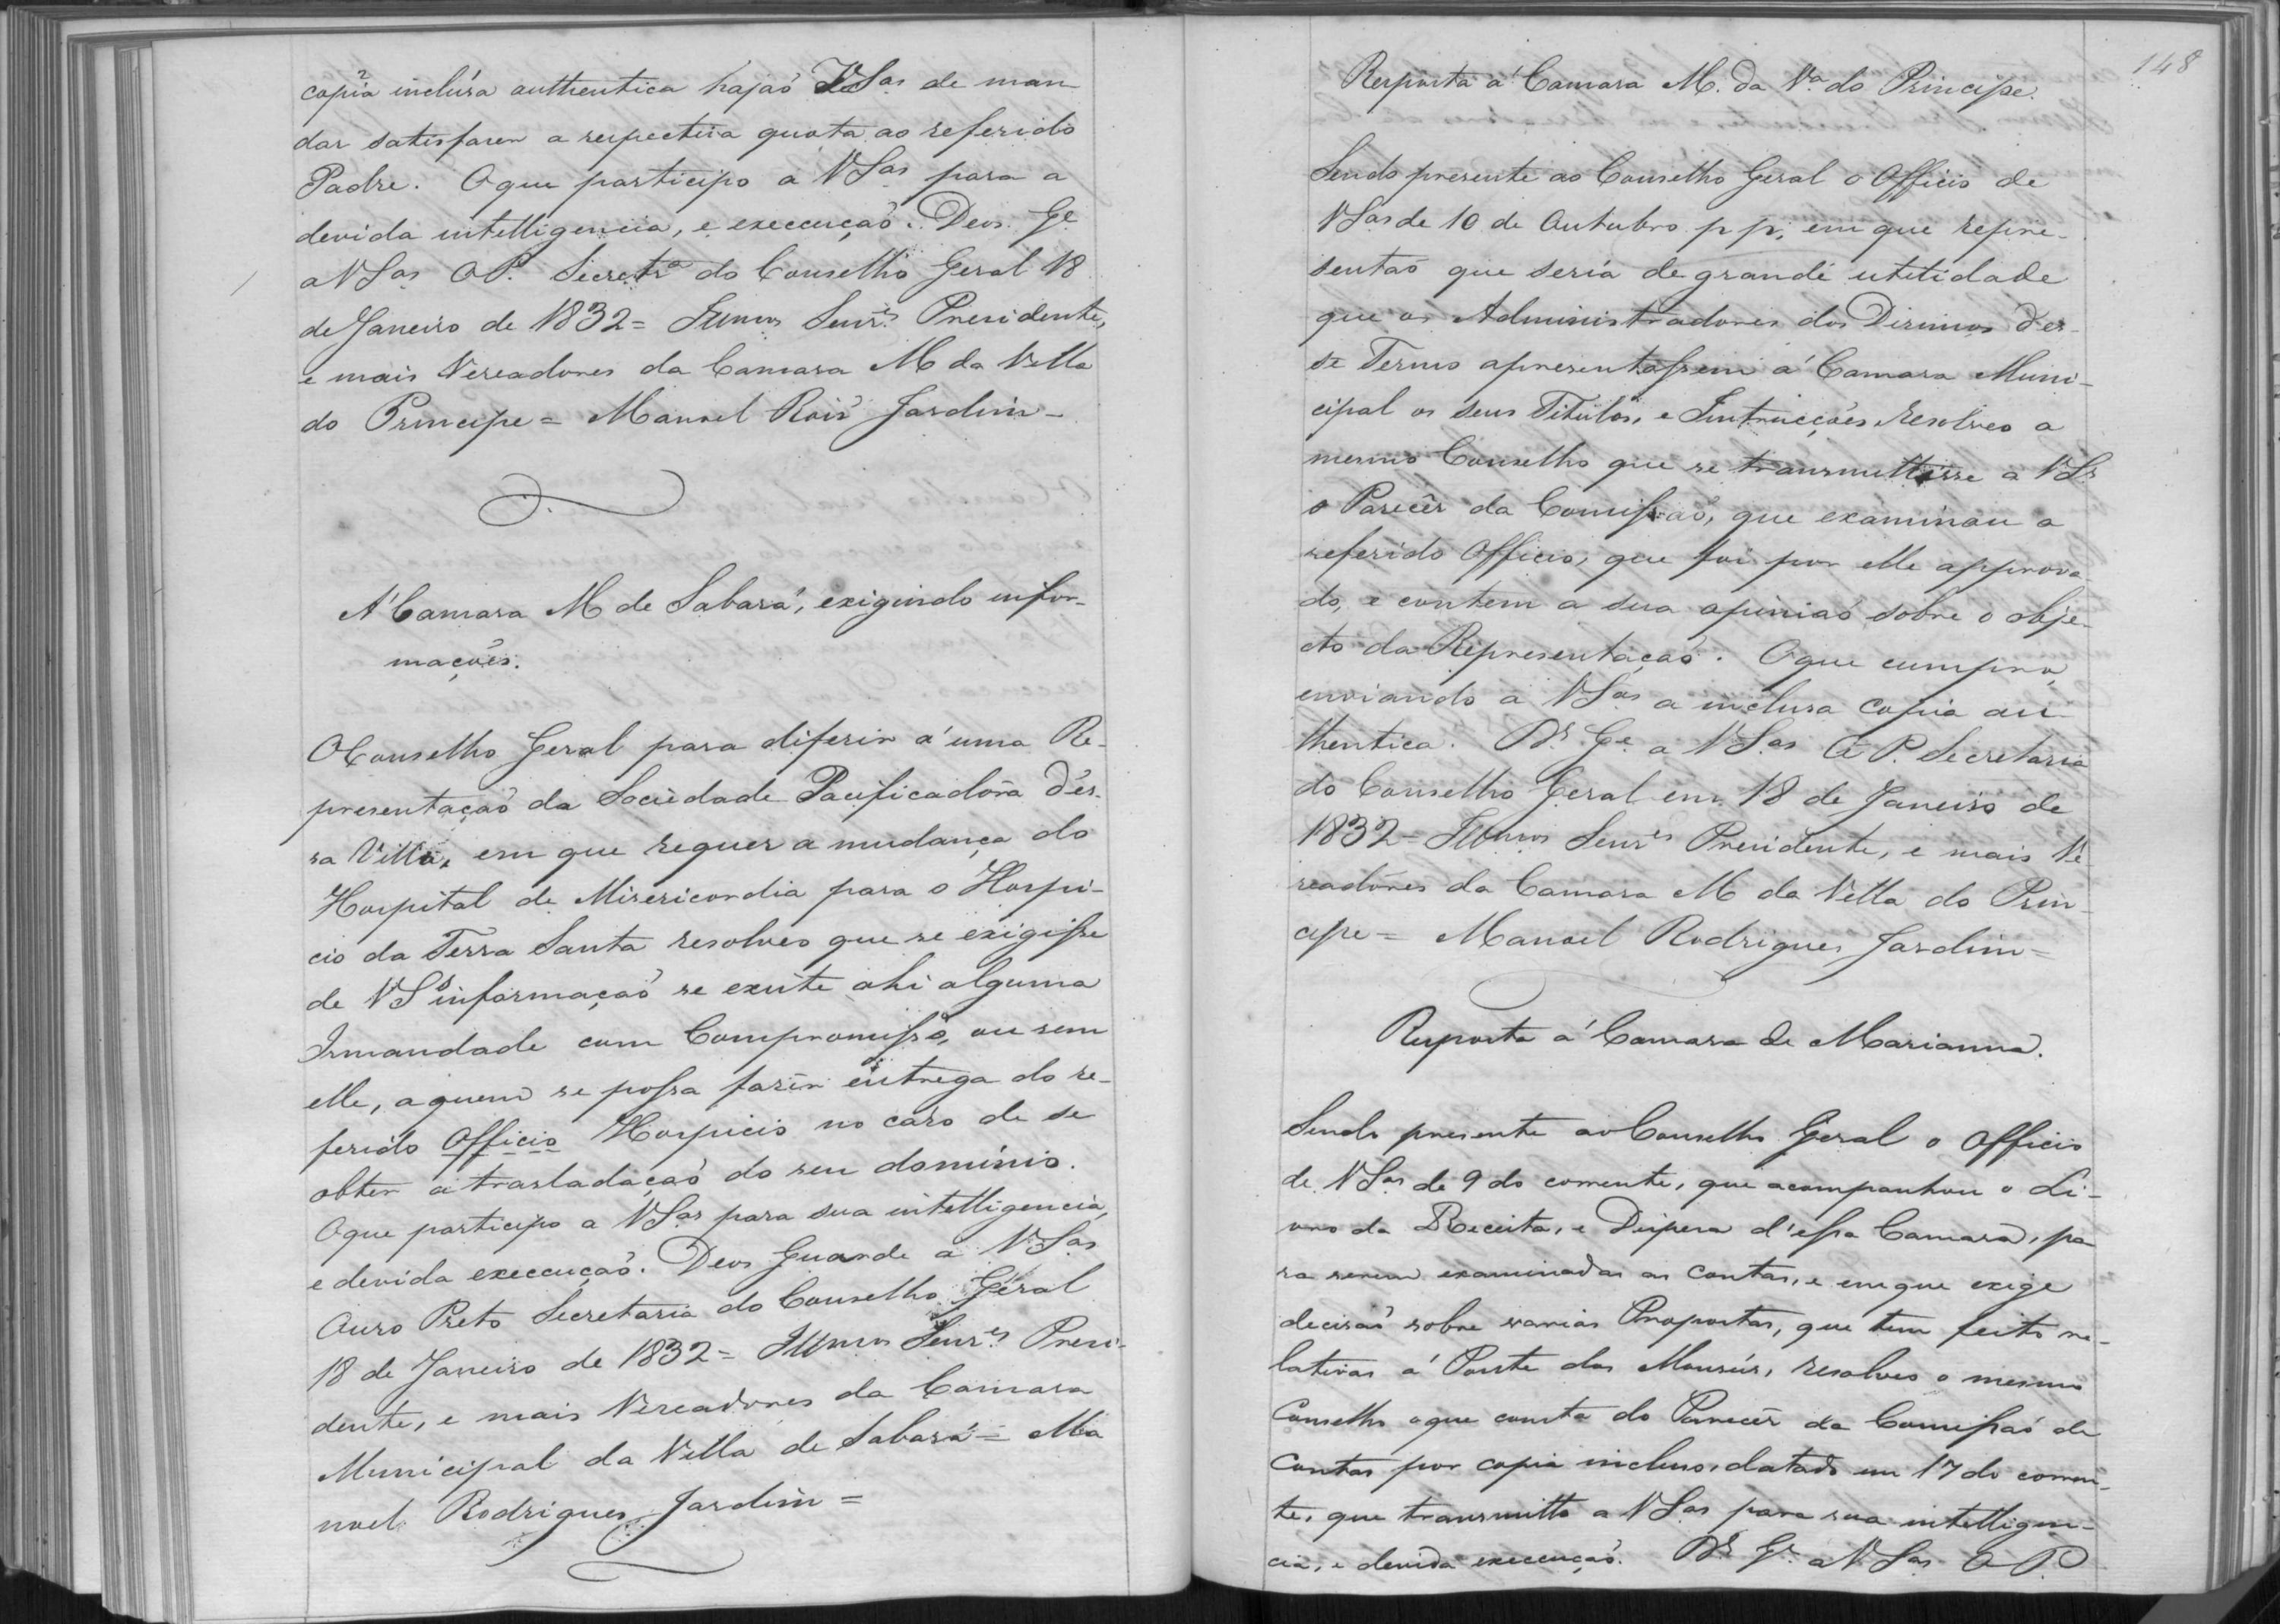 copia inclúsa authentica hajaõ VSas de man
dar satisfazer a respectiva quota ao referido
Padre. Oque participo a VSas para a
devida intelligencia, e execcuçaõ. Deos Ge
a VSas OP. Secretra do Conselho Geral 18
de Janeiro de 1832= Illmos Senres Presidente,
e mais Vereadores da Camara M da Villa
do Principe = Manoel Roiz Jardim-
A' Camara M de Sabará, exigindo infor-
mações.
O Conselho Geral para diferir á uma Re-
presentaçaõ da Sociedade Pacificadora d'es-
sa Villa, em que requer a mudança do
Hospital de Misericordia para o Hospi-
cio da Terra Santa resolveo que se exigisse
de VSas informaçaõ se existe ahi alguma
Irmandade com Compromisso, ou sem
elle, aquem se possa fazer entrega do re-
ferido Officio Hospicio no caso de se
obter a trasladaçaõ do seu dominio.
Oque participo a VSas para sua intelligencia,
e devida execcuçaõ. Deos Guarde a VSas
Ouro Preto Secretaria do Conselho Geral
18 de Janeiro de 1832= Illmos Senres Presi-
dente, e mais Vereadores da Camara
Municipal da Villa de Sabará = Ma
noel Rodrigues Jardim =
148
Resposta á Camara M. da Va do Principe.
Sendo presente ao Conselho Geral o Officio de
VSas de 10 de Outubro p p, em que repre-
sentaõ que seria de grande utilidade
que os Administradores dos Dizimos d'es-
se Termo apresentassem á Camara Muni-
cipal os seus Titulos, e Instrucções resolveo o
mesmo Conselho que se transmittisse a VSas
o Parecer da Comissaõ, que examinou o
referido Officio, que foi por elle approva
do, e contem a sua opiniaõ sobre o obje-
cto da Representaçaõ. Oque cumpro,
enviando a VSas a inclusa copia au
thentica. Ds Ge a VSas O P. Secretaria
do Conselho Geral em 18 de Janeiro de
1832= Illmos Senres Presidente, e mais Ve
readores da Camara M da Villa do Prin
cipe = Manoel Rodrigues Jardim =
Resposta á Camara de Marianna.
Sendo presente ao Conselho Geral o Officio
de VSas de 9 do corrente, que acompanhou o Li-
vro da Receita, e Despesa d'essa Camara, pa
ra serem examinadas as contas, e em que exige
decisaõ sobre varias Propostas, que tem feito re-
lativas á Ponte dos Monsús, resolveo o mesmo
Conselho oque consta do Parecer da Comissaõ de
Contas por copia incluso, datado em 17 do corren
te, que transmitto a VSas para sua intelligen-
cia, e devida execcuçaõ. Ds Ge a VSas O P.